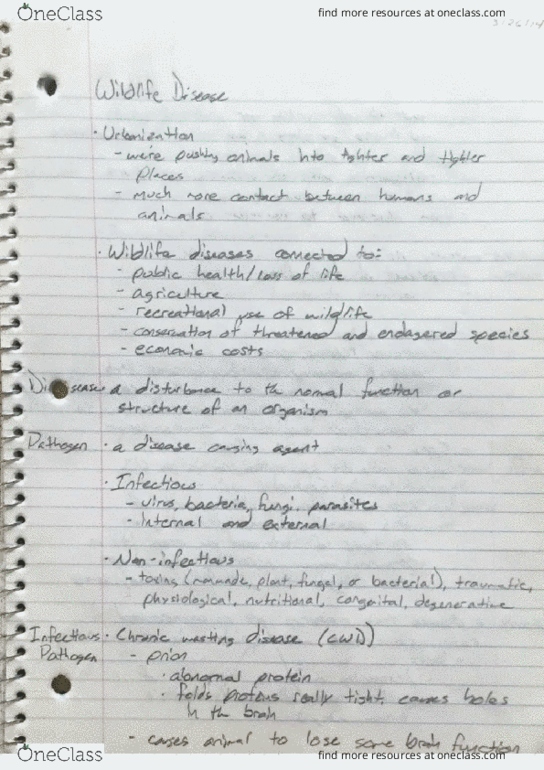 OneClass
find more resources at oneclass.com
Wildlife Disease
· Urbanization
- we're pushing animals into tighter and tighter
places
- Much more contact between humans and
animals
· Wildlife diseases connected to:
- public health/loss of life
- agriculture
- recreational use of wildlife
- conservation of threatened and endagered species
- economic costs
Disease · a disturbance to the normal function or
structure of an organism
Pathogen · a disease causing agent
· Infectious
- virus, bacteria, fungi, parasites
- Internal and external
· Non-infectious
- toxins (manmade, plant, fungal, or bacterial), traumatic,
physiological, nutritional, congenital, degenerative
Infectious · Chronic wasting disease (CWD)
Pathogen - prion
· abnormal protein
· folds proteins really tight, causes holes
in the brain
- causes animal to lose some brain function
OneClass
find more resources at oneclass.com